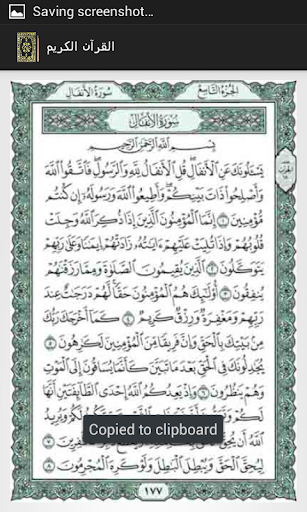 Saving screenshot…
القرآن الكريم
سُورَةُ الأَنفَالِ الجُزْءُ التَّاسِعُ
سُورَةُ الأَنفَالِ
بِسْمِ اللَّهِ الرَّحْمَٰنِ الرَّحِيمِ
يَسْـَٔلُونَكَ عَنِ ٱلْأَنفَالِ قُلِ ٱلْأَنفَالُ لِلَّهِ وَٱلرَّسُولِ فَٱتَّقُوا۟ ٱللَّهَ
وَأَصْلِحُوا۟ ذَاتَ بَيْنِكُمْ وَأَطِيعُوا۟ ٱللَّهَ وَرَسُولَهُۥٓ إِن كُنتُم
مُّؤْمِنِينَ ١ إِنَّمَا ٱلْمُؤْمِنُونَ ٱلَّذِينَ إِذَا ذُكِرَ ٱللَّهُ وَجِلَتْ
قُلُوبُهُمْ وَإِذَا تُلِيَتْ عَلَيْهِمْ ءَايَٰتُهُۥ زَادَتْهُمْ إِيمَٰنًا وَعَلَىٰ رَبِّهِمْ
يَتَوَكَّلُونَ ٢ ٱلَّذِينَ يُقِيمُونَ ٱلصَّلَوٰةَ وَمِمَّا رَزَقْنَٰهُمْ
يُنفِقُونَ ٣ أُو۟لَٰٓئِكَ هُمُ ٱلْمُؤْمِنُونَ حَقًّا لَّهُمْ دَرَجَٰتٌ عِندَ
رَبِّهِمْ وَمَغْفِرَةٌ وَرِزْقٌ كَرِيمٌ ٤ كَمَآ أَخْرَجَكَ رَبُّكَ
مِنۢ بَيْتِكَ بِٱلْحَقِّ وَإِنَّ فَرِيقًا مِّنَ ٱلْمُؤْمِنِينَ لَكَٰرِهُونَ ٥
يُجَٰدِلُونَكَ فِى ٱلْحَقِّ بَعْدَ مَا تَبَيَّنَ كَأَنَّمَا يُسَاقُونَ إِلَى ٱلْمَوْتِ
وَهُمْ يَنظُرُونَ ٦ وَإِذْ يَعِدُكُمُ ٱللَّهُ إِحْدَى ٱلطَّآئِفَتَيْنِ أَنَّهَا
لَكُمْ وَتُرِيدُ
ٱللَّهُ أَن يُحِقَّ ٱلْكَٰفِرِينَ ٧
Copied to clipboard
لِيُحِقَّ ٱلْحَقَّ وَيُبْطِلَ ٱلْبَٰطِلَ وَلَوْ كَرِهَ ٱلْمُجْرِمُونَ ٨
١٧٧